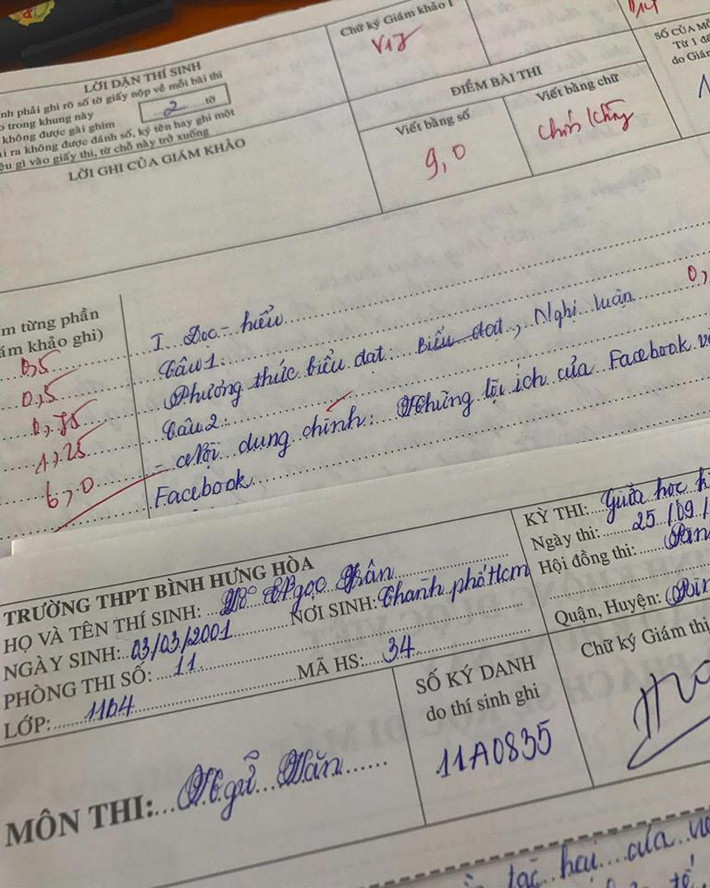 LỜI DẶN THÍ SINH
nh phải ghi rõ số tờ giấy nộp về mỗi bài thi
trong khung này
2 tờ
không được gài ghim
i ra không được đánh số, ký tên hay ghi một
ệu gì vào giấy thi, từ chỗ này trở xuống
LỜI GHI CỦA GIÁM KHẢO
Chữ ký Giám khảo 1
ĐIỂM BÀI THI
Viết bằng số
9,0
Viết bằng chữ
SỐ CỦA
Từ 1 đế
do Giám
m từng phần
ám khảo ghi)
0,5
0,5
0,75
1,25
6,0
I. Đọc - hiểu
Câu 1:
Phương thức biểu đạt: Biểu đạt, Nghị luận
0,
Câu 2:
- Nội dung chính: Những lợi ích của Facebook
Facebook
TRƯỜNG THPT BÌNH HƯNG HÒA
HỌ VÀ TÊN THÍ SINH: Ngọc Hân
NGÀY SINH: 03/03/2001 NƠI SINH: Thành phố Hcm
PHÒNG THI SỐ: 11
MÃ HS: 34
LỚP: 11b4
KỲ THI: Giữa học k
Ngày thi: 25/09/
Hội đồng thi:
Quận, Huyện: Bìn
MÔN THI: Ngữ Văn
SỐ KÝ DANH
do thí sinh ghi
11A0835
Chữ ký Giám thị